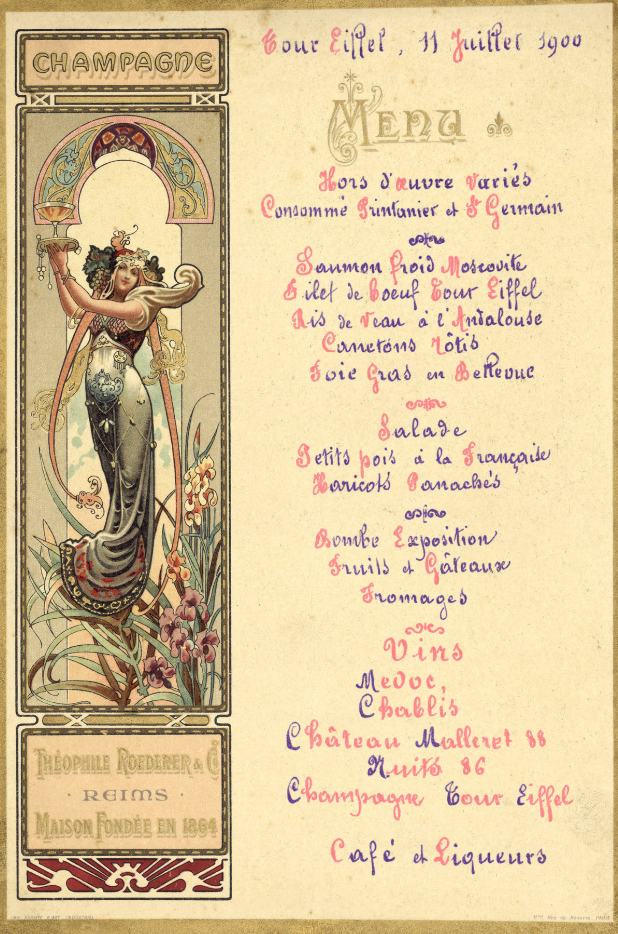 CHAMPAGNE
Tour Eiffel, 11 Juillet 1900
MENU
Hors d'œuvre Variés
Consommé Printanier et St Germain
Saumon froid Moscovite
Filet de Boeuf Tour Eiffel
Ris de Veau à l'Andalouse
Canetons Rôtis
Foie Gras en Bellevue
Salade
Petits pois à la Française
Haricots Panachés
Bombe Exposition
Fruits et Gâteaux
Fromages
Vins
Medoc,
Chablis
Château Malleret 88
Nuits 86
Champagne Tour Eiffel
Café et Liqueurs
THÉOPHILE ROEDERER & Co
· REIMS ·
MAISON FONDÉE EN 1864